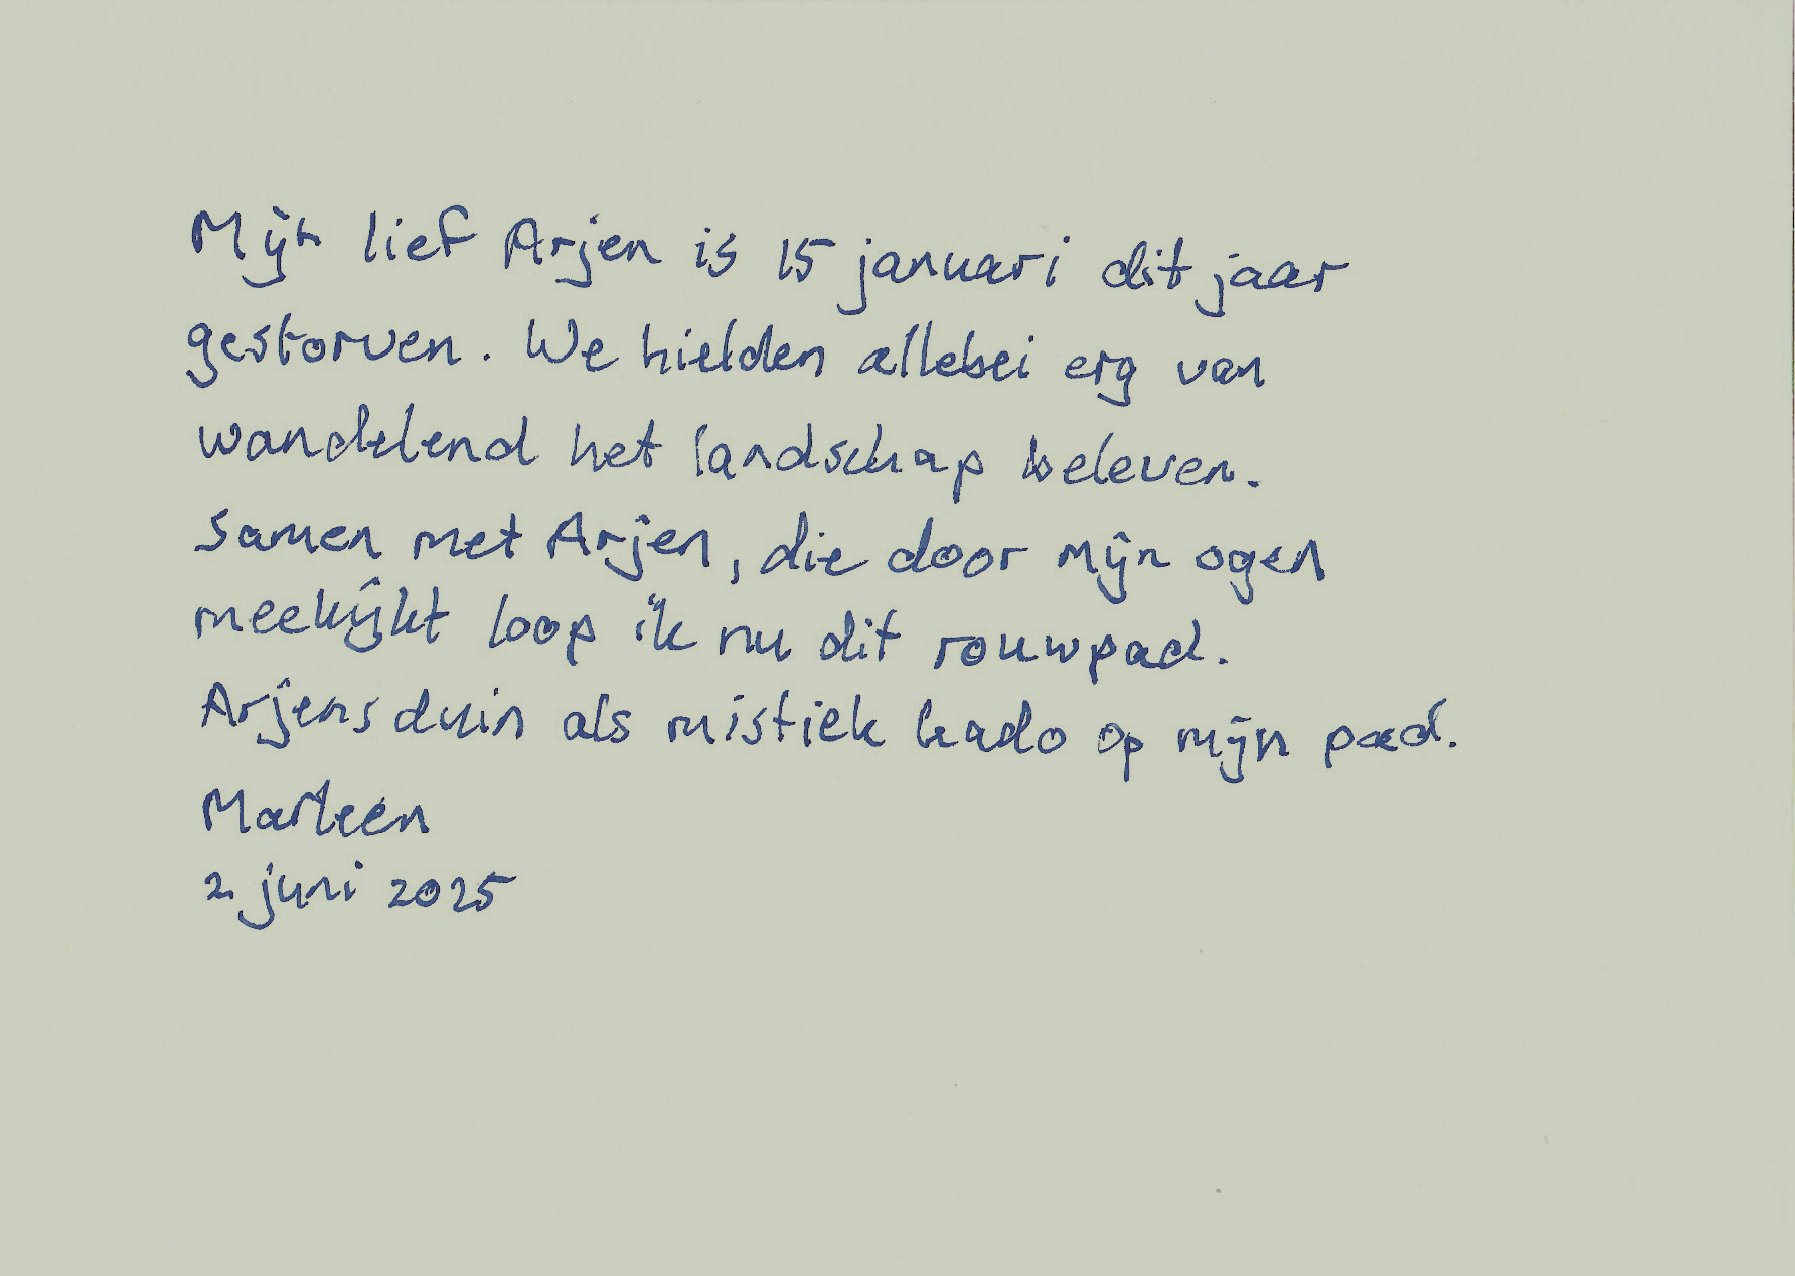 Mijn lief Arjen is 15 januari dit jaar
gestorven. We hielden allebei erg van
wandelend het landschap beleven.
Samen met Arjen, die door mijn ogen
meekijkt loop ik nu dit rouwpad.
Arjens duin als mistiek kado op mijn pad.
Marleen
2 juni 2025